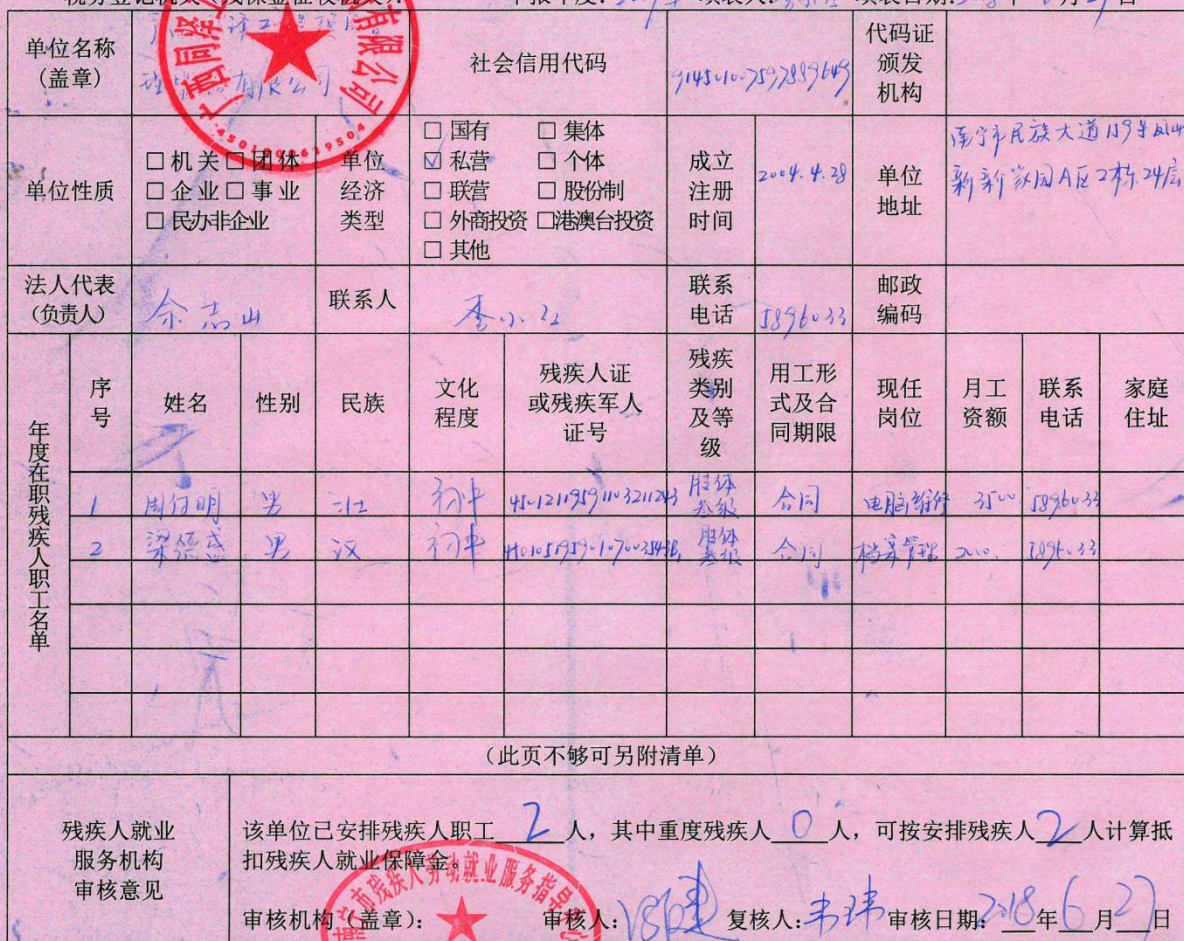 单位名称
(盖章)
有限公司
社会信用代码
代码证
颁发
机构
单位性质
□机关□团体
□企业□事业
□民办非企业
单位
经济
类型
□国有 □集体
☑私营 □个体
□联营 □股份制
□外商投资 □港澳台投资
□其他
成立
注册
时间
2004.4.28
单位
地址
南宁市民族大道159号凤岭
新新家园A区2栋24层
法人代表
(负责人)
余志山
联系人
李小红
联系
电话
5896033
邮政
编码
年度在职残疾人职工名单
序号 姓名 性别 民族 文化程度 残疾人证或残疾军人证号 残疾类别及等级 用工形式及合同期限 现任岗位 月工资额 联系电话 家庭住址
1 周付明 男 壮 初中 肢体叁级 合同 电脑维修 3500 5896033
2 男 汉 初中 肢体叁级 合同 档案管理 2000. 5896033
(此页不够可另附清单)
残疾人就业
服务机构
审核意见
该单位已安排残疾人职工 2 人，其中重度残疾人 0 人，可按安排残疾人 2 人计算抵
扣残疾人就业保障金。
审核机构(盖章)： 审核人： 复核人：韦玮 审核日期：2018年6月27日